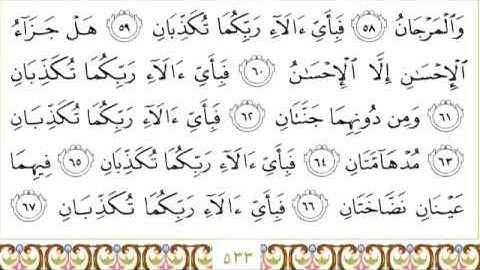 وَٱلْمَرْجَانُ ٥٨ فَبِأَىِّ ءَالَآءِ رَبِّكُمَا تُكَذِّبَانِ ٥٩ هَلْ جَزَآءُ
ٱلْإِحْسَـٰنِ إِلَّا ٱلْإِحْسَـٰنُ ٦٠ فَبِأَىِّ ءَالَآءِ رَبِّكُمَا تُكَذِّبَانِ
٦١ وَمِن دُونِهِمَا جَنَّتَانِ ٦٢ فَبِأَىِّ ءَالَآءِ رَبِّكُمَا تُكَذِّبَانِ
٦٣ مُدْهَآمَّتَانِ ٦٤ فَبِأَىِّ ءَالَآءِ رَبِّكُمَا تُكَذِّبَانِ ٦٥ فِيهِمَا
عَيْنَانِ نَضَّاخَتَانِ ٦٦ فَبِأَىِّ ءَالَآءِ رَبِّكُمَا تُكَذِّبَانِ ٦٧
٥٣٣